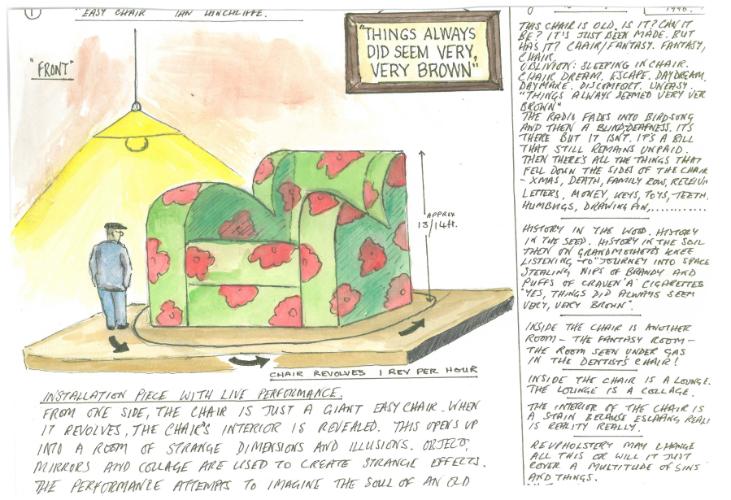 1
"EASY CHAIR" IAN HINCHLIFFE.
"FRONT"
"THINGS ALWAYS
DID SEEM VERY,
VERY BROWN"
APPROX
13/14ft.
CHAIR REVOLVES 1 REV PER HOUR
INSTALLATION PIECE WITH LIVE PERFORMANCE.
FROM ONE SIDE, THE CHAIR IS JUST A GIANT EASY CHAIR. WHEN
IT REVOLVES, THE CHAIR'S INTERIOR IS REVEALED. THIS OPENS UP
INTO A ROOM OF STRANGE DIMENSIONS AND ILLUSIONS. OBJECTS,
MIRRORS AND COLLAGE ARE USED TO CREATE STRANGE EFFECTS.
THE PERFORMANCE ATTEMPTS TO IMAGINE THE SOUL OF AN OLD
1996.
THIS CHAIR IS OLD, IS IT? CAN IT
BE? IT'S JUST BEEN MADE. BUT
HAS IT? CHAIR/FANTASY. FANTASY,
CHAIR.
OBLIVION: SLEEPING IN CHAIR.
CHAIR DREAM. ESCAPE. DAYDREAM.
DAYMARE. DISCOMFORT. UNEASY.
"THINGS ALWAYS SEEMED VERY VER
BROWN"
THE RADIO FADES INTO BIRDSONG
AND THEN A DEAFNESS. IT'S
THERE BUT IT ISN'T. IT'S A BILL
THAT STILL REMAINS UNPAID.
THEN THERE'S ALL THE THINGS THAT
FELL DOWN THE SIDES OF THE CHAIR
- XMAS, DEATH, FAMILY ROW, RECEIVI
LETTERS, MONEY, KEYS, TOYS, TEETH
HUMBUGS, DRAWING PIN,..........
HISTORY IN THE WOOD. HISTORY
IN THE SEED. HISTORY IN THE SOIL
THEN ON GRANDMOTHER'S KNEE
LISTENING TO "JOURNEY INTO SPACE
STEALING NIPS OF BRANDY AND
PUFFS OF CRAVEN 'A' CIGARETTES
"YES, THINGS DID ALWAYS SEEM
VERY, VERY BROWN".
INSIDE THE CHAIR IS ANOTHER
ROOM - THE FANTASY ROOM -
THE ROOM SEEN UNDER GAS
IN THE DENTIST'S CHAIR!
INSIDE THE CHAIR IS A LOUNGE.
THE LOUNGE IS A COLLAGE.
THE INTERIOR OF THE CHAIR IS
A STAIN BECAUSE ESCAPING REALI
IS REALITY REALLY.
REUPHOLSTERY MAY CHANGE
ALL THIS OR WILL IT JUST
COVER A MULTITUDE OF SINS
AND THINGS.